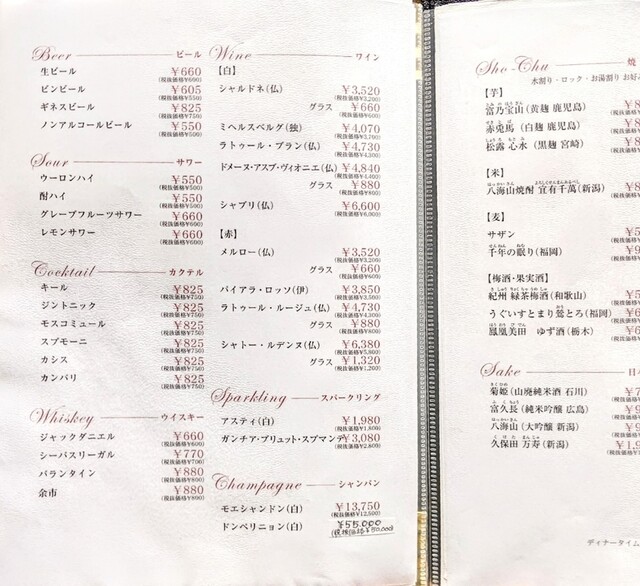 Beer ビール
生ビール ¥660
(税抜価格¥600)
ビンビール ¥605
(税抜価格¥550)
ギネスビール ¥825
(税抜価格¥750)
ノンアルコールビール ¥550
(税抜価格¥500)
Sour サワー
ウーロンハイ ¥550
(税抜価格¥500)
酎ハイ ¥550
(税抜価格¥500)
グレープフルーツサワー ¥660
(税抜価格¥600)
レモンサワー ¥660
(税抜価格¥600)
Cocktail カクテル
キール ¥825
(税抜価格¥750)
ジントニック ¥825
(税抜価格¥750)
モスコミュール ¥825
(税抜価格¥750)
スプモーニ ¥825
(税抜価格¥750)
カシス ¥825
(税抜価格¥750)
カンパリ ¥825
(税抜価格¥750)
Whiskey ウイスキー
ジャックダニエル ¥660
(税抜価格¥600)
シーバスリーガル ¥770
(税抜価格¥700)
バランタイン ¥880
(税抜価格¥800)
余市 ¥880
(税抜価格¥800)
Wine ワイン
【白】
シャルドネ(仏) ¥3,520
(税抜価格¥3,200)
グラス ¥660
(税抜価格¥600)
ミヘルスベルグ(独) ¥4,070
(税抜価格¥3,700)
ラトゥール・ブラン(仏) ¥4,730
(税抜価格¥4,300)
ドメーヌ・アスブ・ヴィオニエ(仏) ¥4,840
(税抜価格¥4,400)
グラス ¥880
(税抜価格¥800)
シャブリ(仏) ¥6,600
(税抜価格¥6,000)
【赤】
メルロー(仏) ¥3,520
(税抜価格¥3,200)
グラス ¥660
(税抜価格¥600)
パイアラ・ロッソ(伊) ¥3,850
(税抜価格¥3,500)
ラトゥール・ルージュ(仏) ¥4,730
(税抜価格¥4,300)
グラス ¥880
(税抜価格¥800)
シャトー・ルデンヌ(仏) ¥6,380
(税抜価格¥5,800)
グラス ¥1,320
(税抜価格¥1,200)
Sparkling スパークリング
アスティ(白) ¥1,980
(税抜価格¥1,800)
ガンチア・ブリュット・スプマンテ ¥3,080
(税抜価格¥2,800)
Champagne シャンパン
モエシャンドン(白) ¥13,750
(税抜価格¥12,500)
ドンペリニョン(白) ¥55,000
(税抜価格¥50,000)
Sho-Chu 焼
水割り・ロック・お湯割り お好み
【芋】
富乃宝山(黄麹 鹿児島)
赤兎馬(白麹 鹿児島)
松露 心水(黒麹 宮崎)
【米】
八海山焼酎 宜有千萬(新潟)
【麦】
サザン
千年の眠り(福岡)
【梅酒・果実酒】
紀州 緑茶梅酒(和歌山)
うぐいすとまり鶯とろ(福岡)
鳳凰美田 ゆず酒(栃木)
Sake 日
菊姫(山廃純米酒 石川)
富久長(純米吟醸 広島)
八海山(大吟醸 新潟)
久保田 万寿(新潟)
ディナータイム